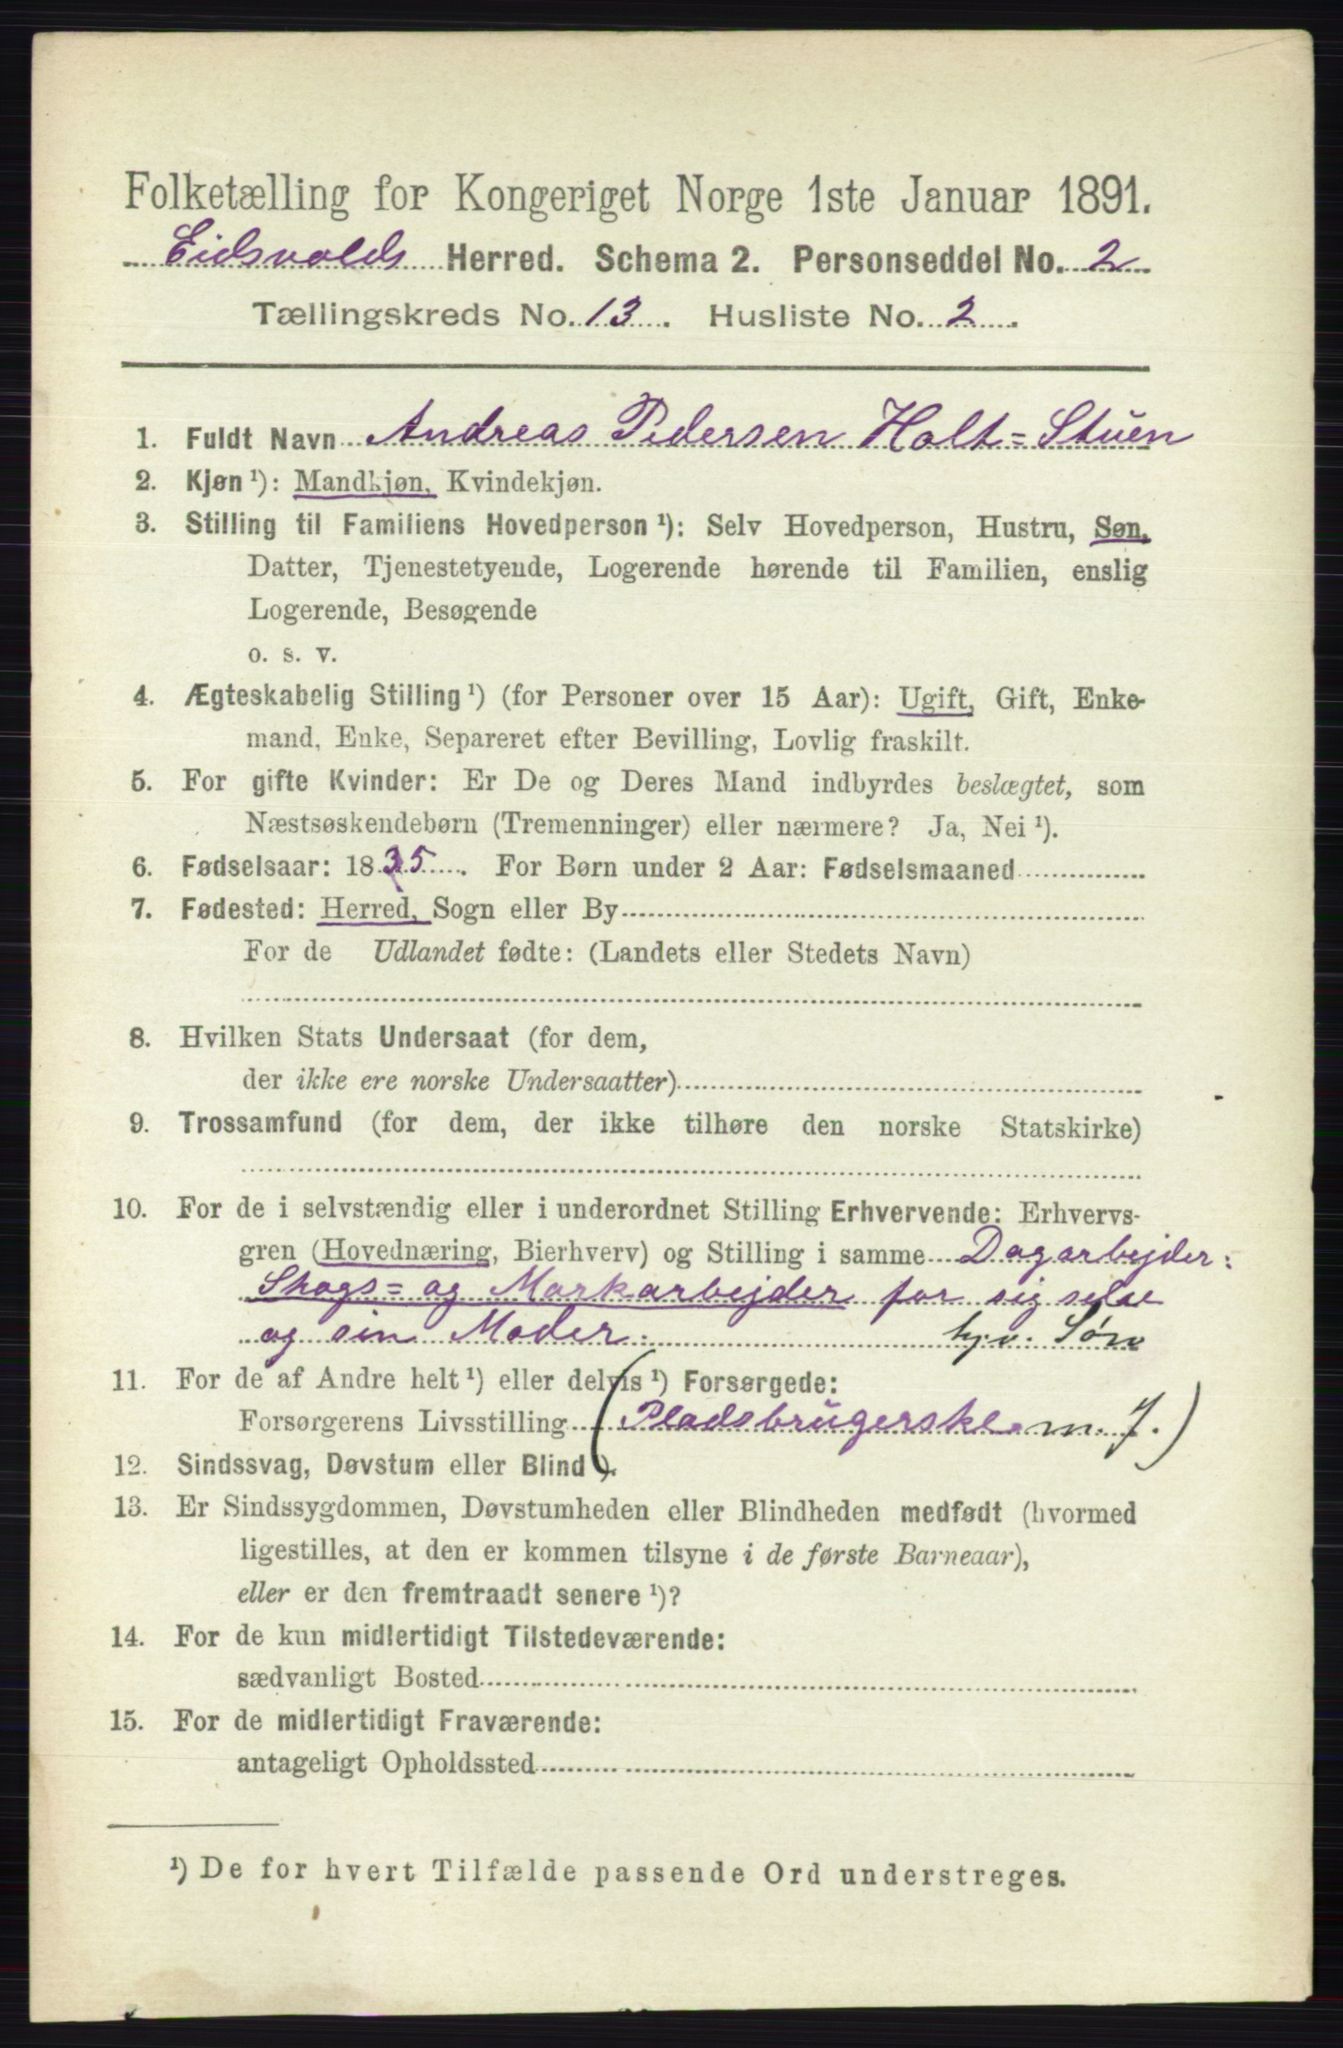 Folketælling for Kongeriget Norge 1ste Januar 1891.
Eidsvolds Herred. Schema 2. Personseddel No. 2
Tællingskreds No. 13. Husliste No. 2.
1. Fuldt Navn Andreas Pedersen Holt=Stuen
2. Kjøn ¹): Mandkjøn, Kvindekjøn.
3. Stilling til Familiens Hovedperson ¹): Selv Hovedperson, Hustru, Søn,
Datter, Tjenestetyende, Logerende hørende til Familien, enslig
Logerende, Besøgende
o. s. v.
4. Ægteskabelig Stilling ¹) (for Personer over 15 Aar): Ugift, Gift, Enke-
mand, Enke, Separeret efter Bevilling, Lovlig fraskilt.
5. For gifte Kvinder: Er De og Deres Mand indbyrdes beslægtet, som
Næstsøskendebørn (Tremenninger) eller nærmere? Ja, Nei ¹).
6. Fødselsaar: 1835. For Børn under 2 Aar: Fødselsmaaned
7. Fødested: Herred, Sogn eller By
For de Udlandet fødte: (Landets eller Stedets Navn)
8. Hvilken Stats Undersaat (for dem,
der ikke ere norske Undersaatter)
9. Trossamfund (for dem, der ikke tilhøre den norske Statskirke)
10. For de i selvstændig eller i underordnet Stilling Erhvervende: Erhvervs-
gren (Hovednæring, Bierhverv) og Stilling i samme Dagarbejder:
Skogs= og Markarbejder for sig selv
og sin Moder. hjv. Søn
11. For de af Andre helt ¹) eller delvis ¹) Forsørgede:
Forsørgerens Livsstilling (Pladsbrugerske m. J.)
12. Sindssvag, Døvstum eller Blind ).
13. Er Sindssygdommen, Døvstumheden eller Blindheden medfødt (hvormed
ligestilles, at den er kommen tilsyne i de første Barneaar),
eller er den fremtraadt senere ¹)?
14. For de kun midlertidigt Tilstedeværende:
sædvanligt Bosted
15. For de midlertidigt Fraværende:
antageligt Opholdssted
¹) De for hvert Tilfælde passende Ord understreges.